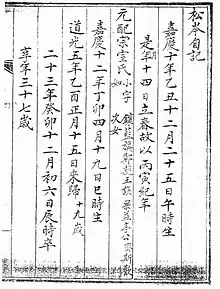 松岑自記
嘉慶十年乙丑十二月二十五日午時生
是年十四日立春故以丙寅紀年
元配宗室氏
小字
如
次女
嘉慶十二年丁卯四月十九日巳時生
道光五年乙酉正月十五日來歸
十九歲
二十三年癸卯十二月初六日辰時卒
享年三十七歲